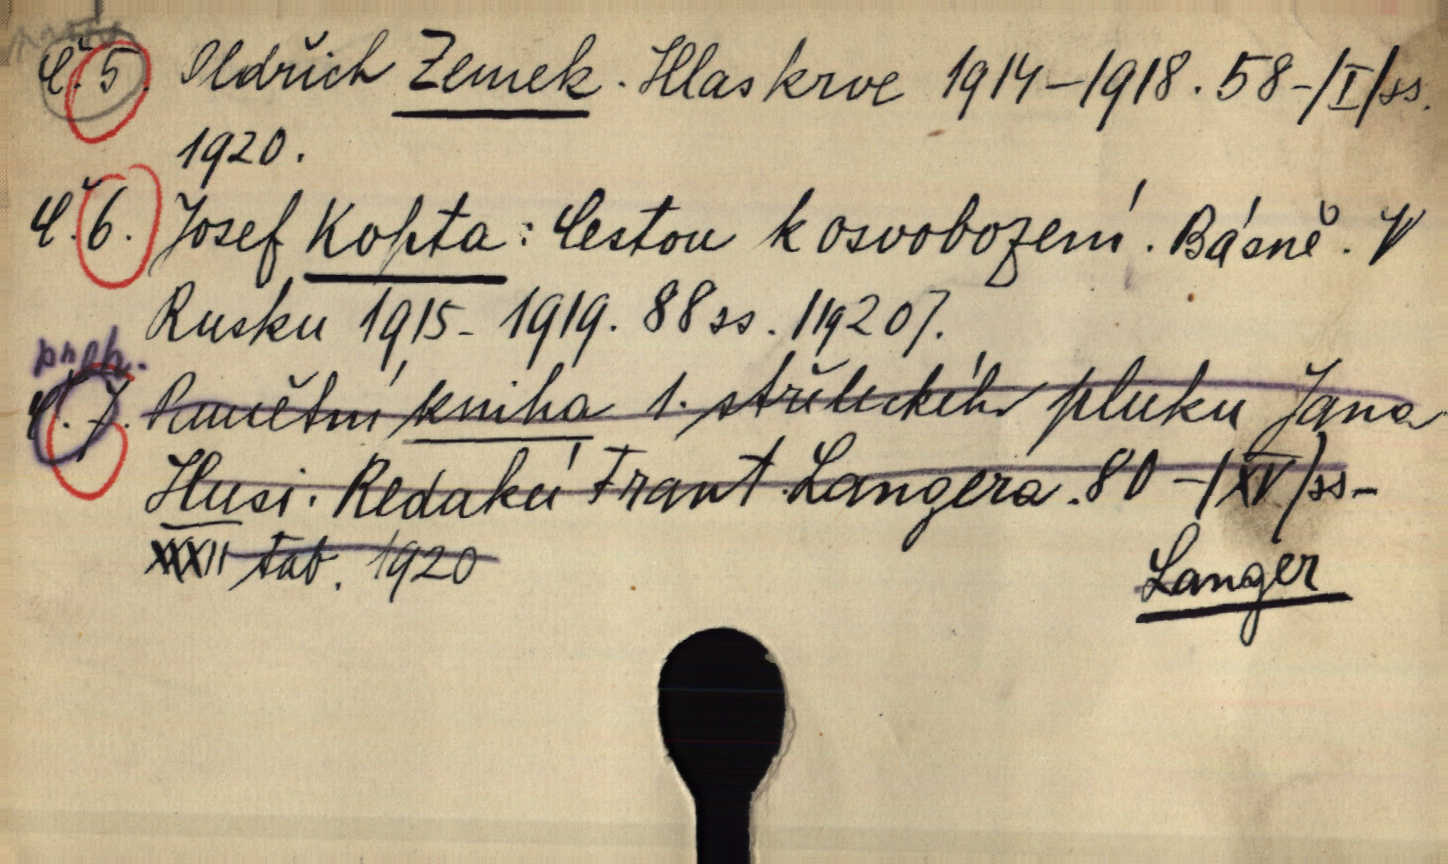 Č. 5. Oldřich Zemek. Hlas krve 1914-1918. 58-/I/ss.
1920.
Č. 6. Josef Kopta: Cestou k osvobození. Básně. V
Rusku 1915-1919. 88 ss. /1920/.
Č. 7. Pamětní kniha 1. střeleckého pluku Jana
Husi. Redakcí Frant. Langera. 80-/XV/ss-
XXXII tab. 1920
Langer